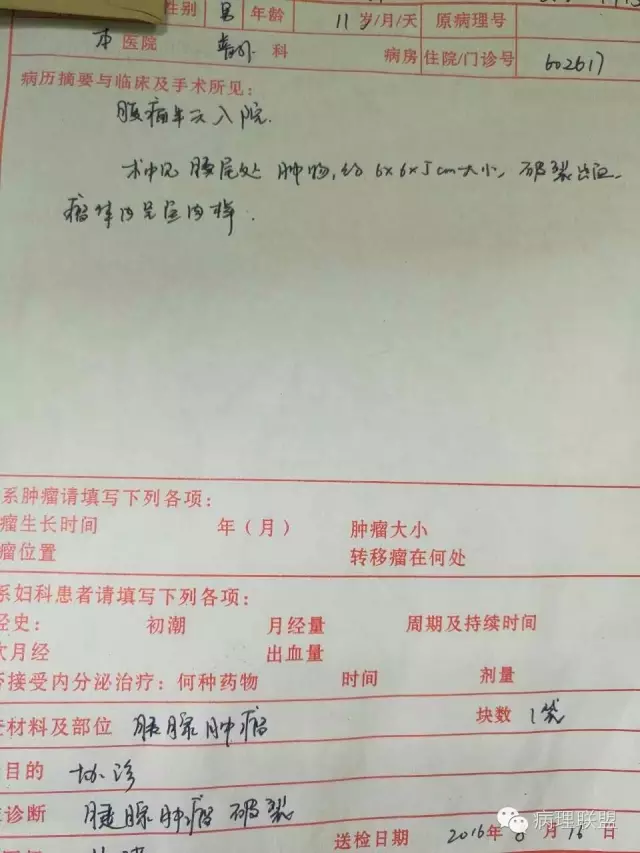 性别 男 年龄 11岁/月/天 原病理号
本 医院 普外 科 病房 住院/门诊号 602617
病历摘要与临床及手术所见:
腹痛半天入院.
术中见 胰尾处 肿物, 约 6×6×5cm大小, 破裂出血,
瘤体内呈鱼肉样.
系肿瘤请填写下列各项:
瘤生长时间 年(月) 肿瘤大小
瘤位置 转移瘤在何处
系妇科患者请填写下列各项:
经史: 初潮 月经量 周期及持续时间
次月经 出血量
否接受内分泌治疗: 何种药物 时间 剂量
材料及部位 胰腺肿瘤 块数 1袋
目的 协诊
诊断 胰腺肿瘤破裂
送检日期 2016年8月16日
病理联盟